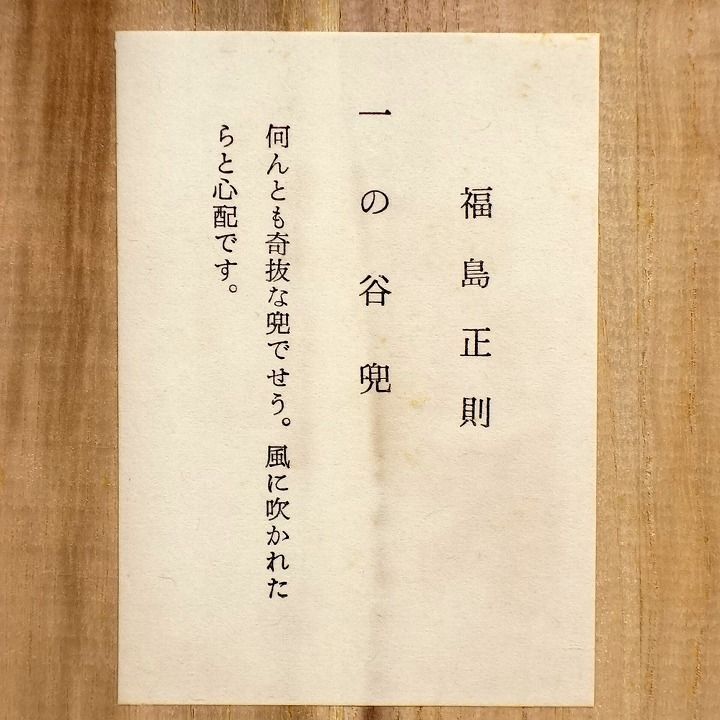 福島正則
一の谷兜
何んとも奇抜な兜でせう。風に吹かれた
らと心配です。